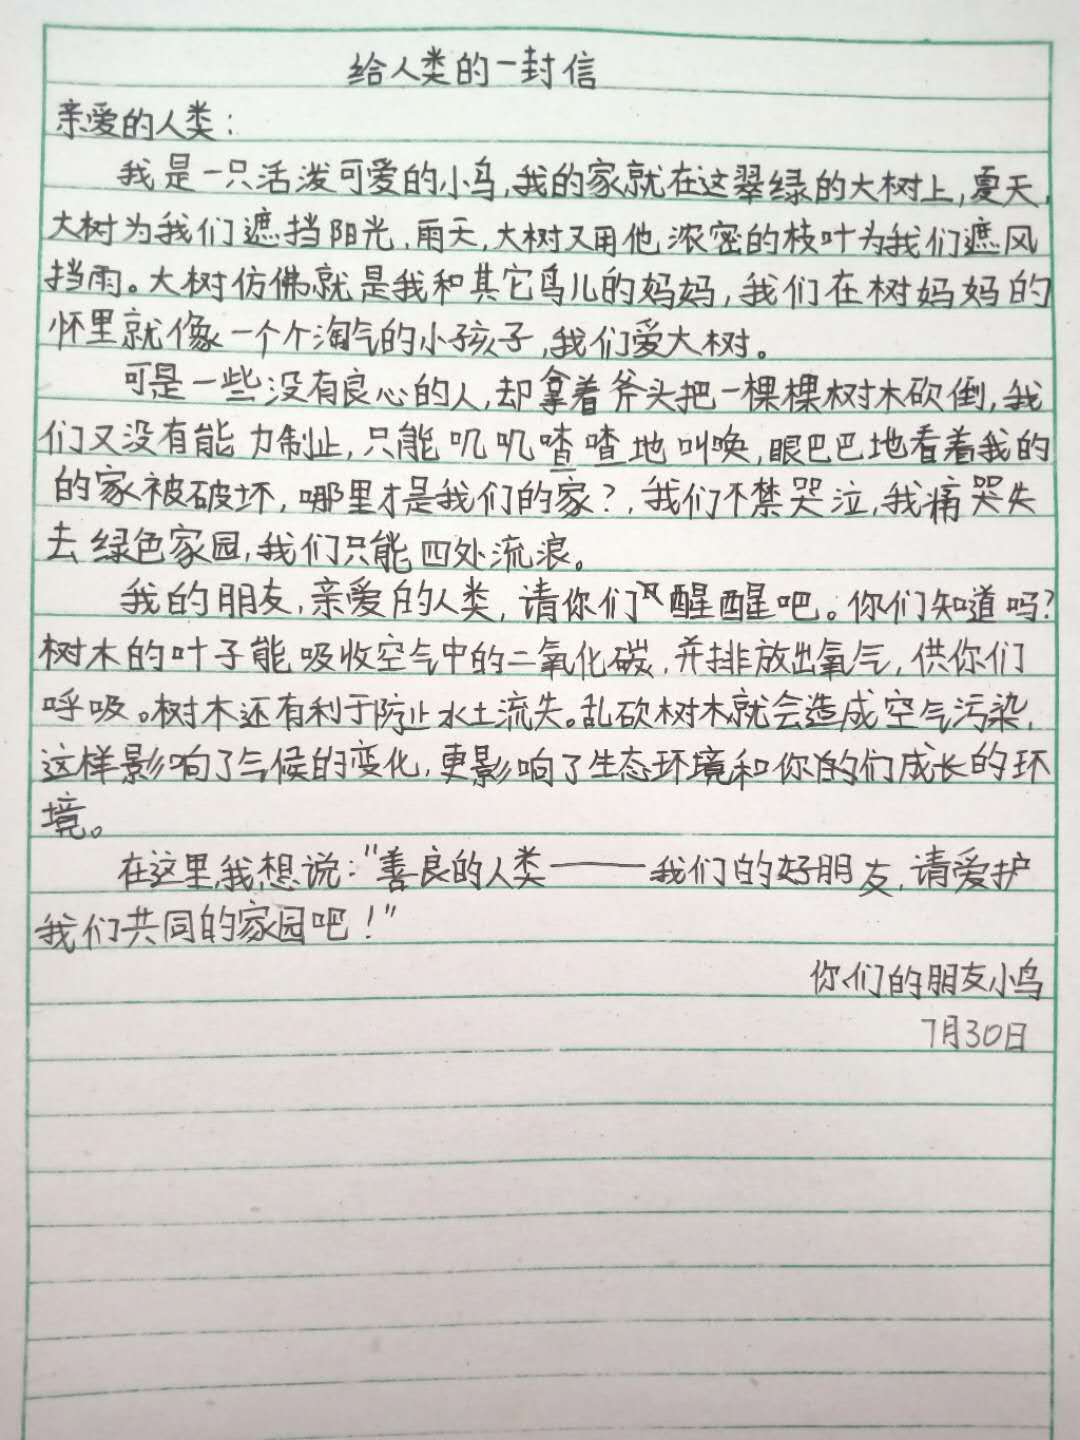 给人类的一封信
亲爱的人类：
我是一只活泼可爱的小鸟，我的家就在这翠绿的大树上，夏天，
大树为我们遮挡阳光，雨天，大树又用他浓密的枝叶为我们遮风
挡雨。大树仿佛就是我和其它鸟儿的妈妈，我们在树妈妈的
怀里就像一个个淘气的小孩子，我们爱大树。
可是一些没有良心的人，却拿着斧头把一棵棵树木砍倒，我
们又没有能力制止，只能叽叽喳喳地叫唤，眼巴巴地看着我的
的家被破坏，哪里才是我们的家？，我们不禁哭泣，我痛哭失
去绿色家园，我们只能四处流浪。
我的朋友，亲爱的人类，请你们醒醒吧。你们知道吗？
树木的叶子能吸收空气中的二氧化碳，并排放出氧气，供你们
呼吸。树木还有利于防止水土流失。乱砍树木就会造成空气污染，
这样影响了气候的变化，更影响了生态环境和你们成长的环
境。
在这里，我想说：“善良的人类——我们的好朋友，请爱护
我们共同的家园吧！”
你们的朋友小鸟
7月30日